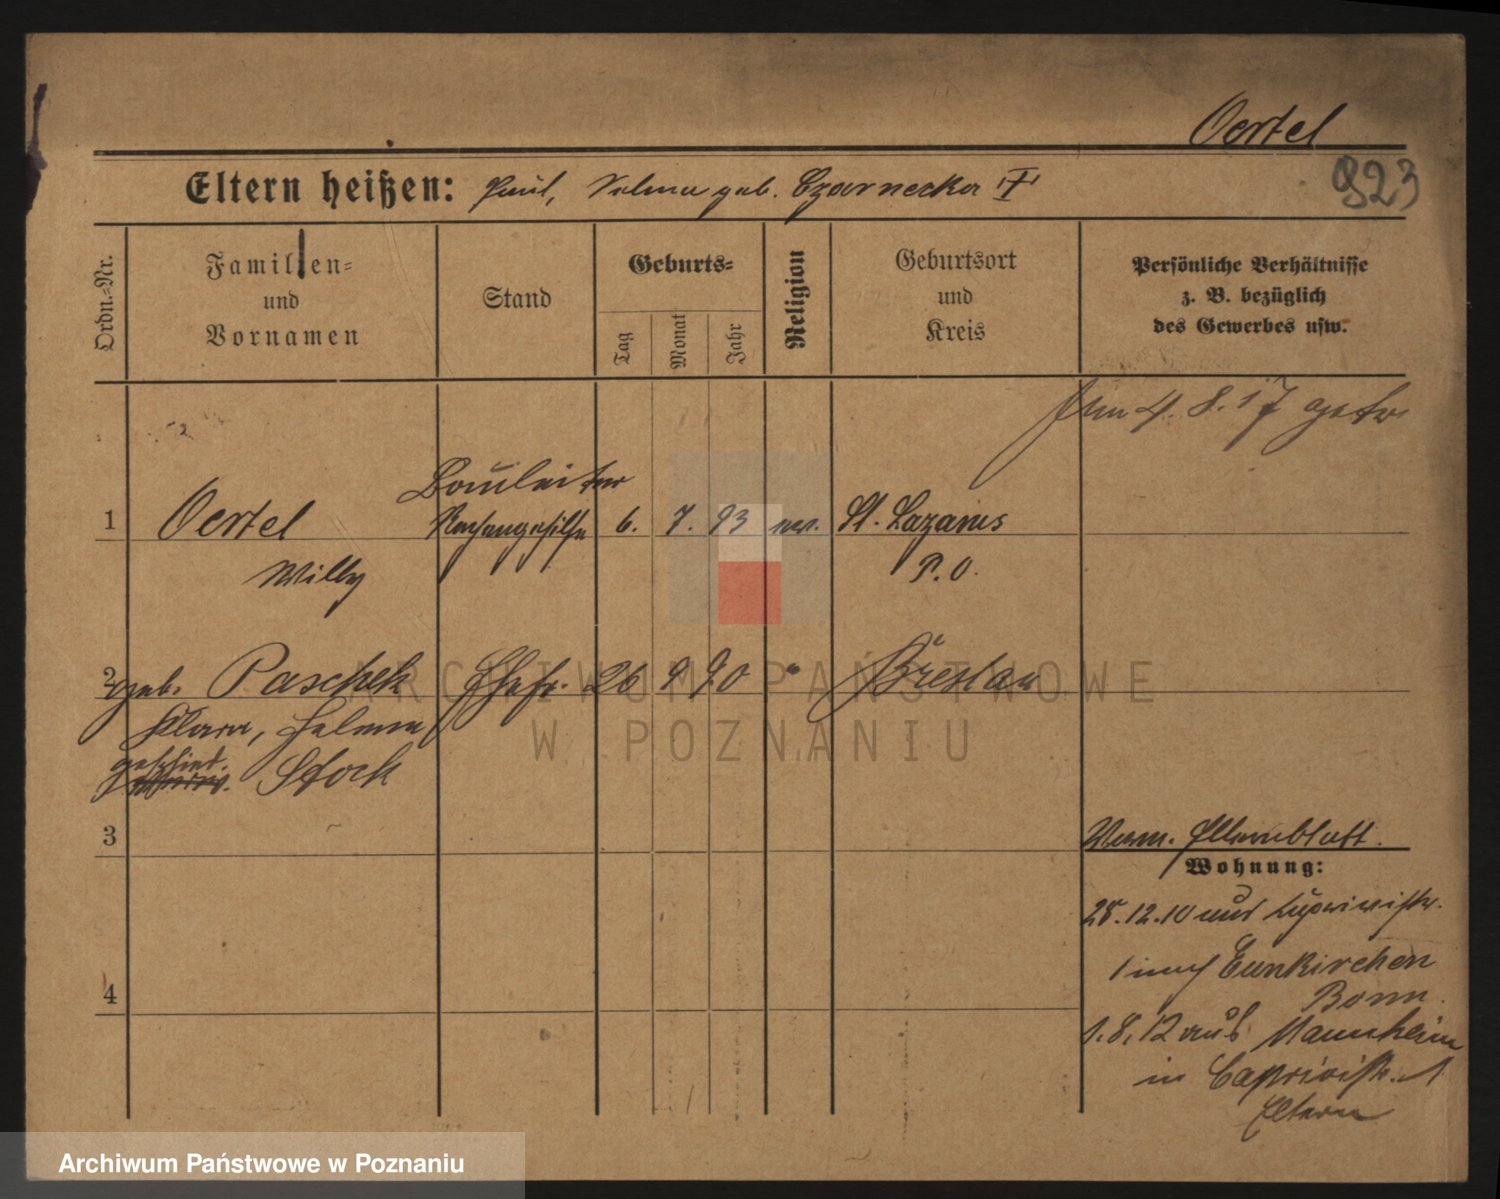 Oertel
923
Eltern heißen: Paul, Selma geb. Czarnecka
Ordn.-Nr.
Familien-
und
Vornamen
Stand
Geburts-
Tag
Monat
Jahr
Religion
Geburtsort
und
Kreis
Persönliche Verhältnisse
z. B. bezüglich
des Gewerbes usw.
4. 8. 17
Bauleiter
1 Oertel 6. 7. 93 ev. St. Lazarus
Willy P. O.
2 geb. Paschek Ehefr. 26 9 90 " Breslau
Klara, Helene
geschied. Stock
3
Verm. Elternblatt.
Wohnung:
28.12.10 aus
1 nach Eunkirchen
Bonn.
4
1.8.12 aus Mannheim
in Caprivistr. 1
Eltern
ARCHIWUM PAŃSTWOWE
W POZNANIU
Archiwum Państwowe w Poznaniu